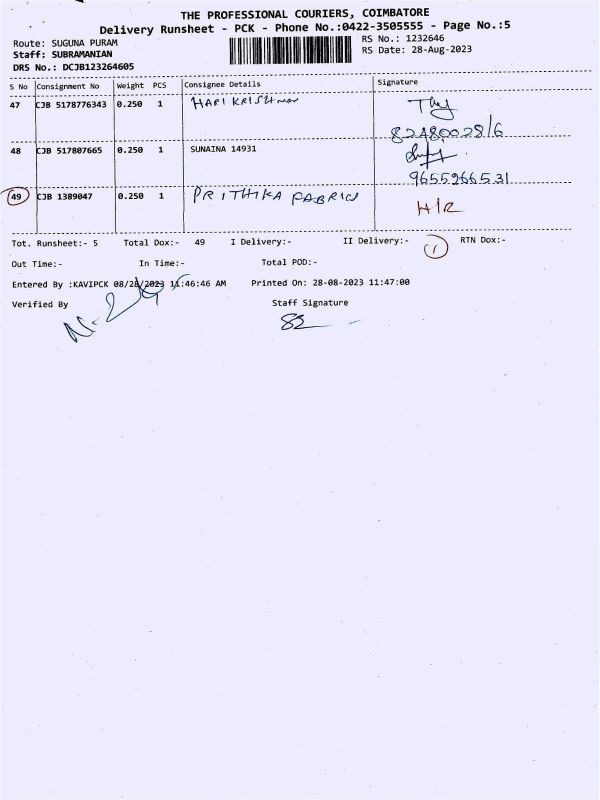 THE PROFESSIONAL COURIERS, COIMBATORE
Delivery Runsheet - PCK - Phone No.:0422-3505555 - Page No.:5
Route: SUGUNA PURAM
RS No.: 1232646
Staff: SUBRAMANIAN
RS Date: 28-Aug-2023
DRS No.: DCJB123264605
S No Consignment No Weight PCS Consignee Details Signature
47 CJB 5178776343 0.250 1 HARI KRISHNAN
8248002816
48 CJB 517807665 0.250 1 SUNAINA 14931
9655266531
49 CJB 1389047 0.250 1 PRITHIKA FABRICS H/R
Tot. Runsheet:- 5 Total Dox:- 49 I Delivery:- II Delivery:- 1 RTN Dox:-
Out Time:- In Time:- Total POD:-
Entered By :KAVIPCK 08/28/2023 11:46:46 AM Printed On: 28-08-2023 11:47:00
Verified By Staff Signature